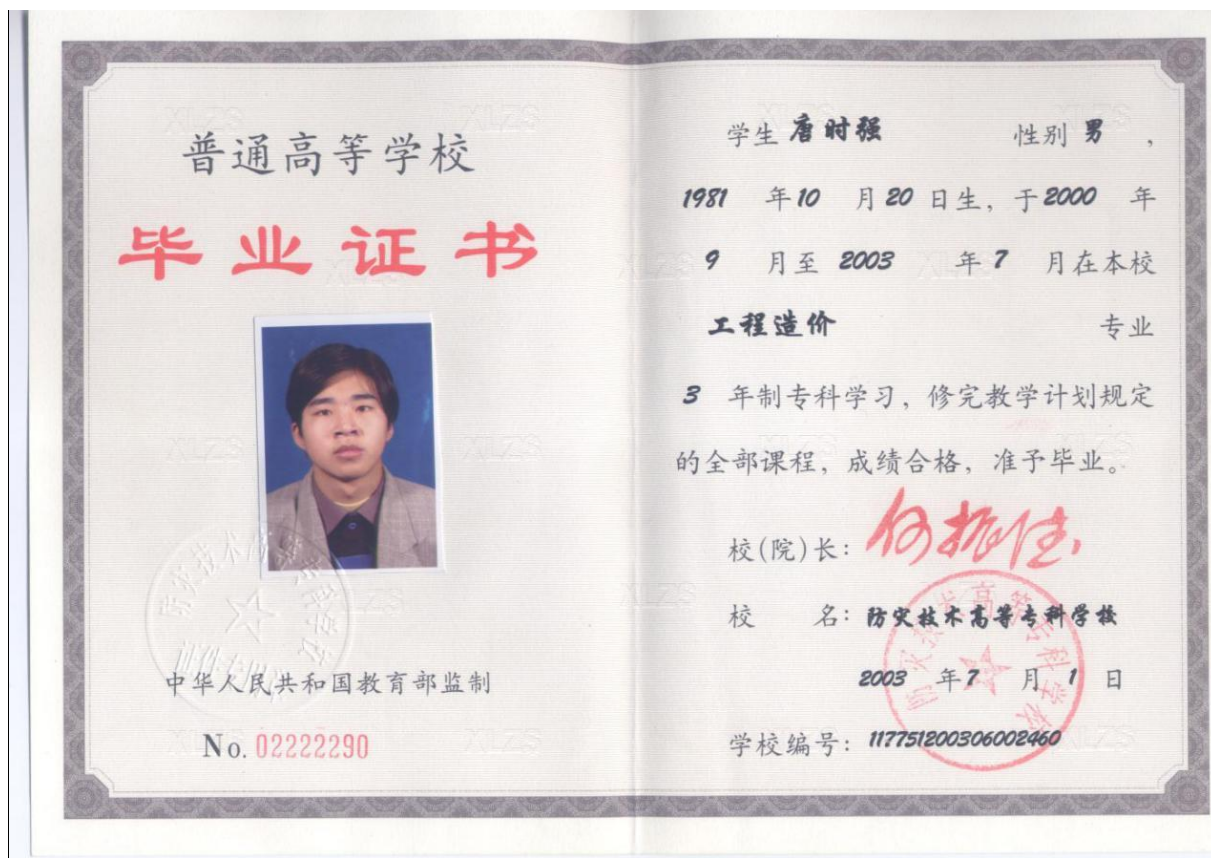 普通高等学校
毕业证书
中华人民共和国教育部监制
No. 02222290
学生 唐时强 性别 男 ,
1981 年 10 月 20 日生, 于 2000 年
9 月至 2003 年 7 月在本校
工程造价 专业
3 年制专科学习, 修完教学计划规定
的全部课程, 成绩合格, 准予毕业。
校(院)长:
校 名: 防灾技术高等专科学校
2003 年 7 月 1 日
学校编号: 117751200306002460
防灾技术高等专科学校
证件专用章
XLZS